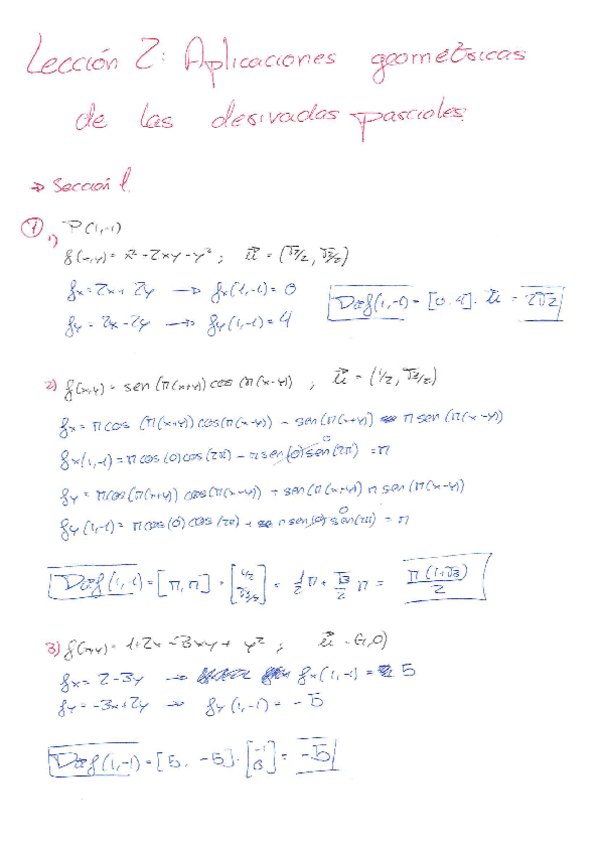 Lección 2: Aplicaciones geométricas
de las derivadas parciales.
→ Sección 1.
① P(1,-1)
1) f(x,y) = x² - 2xy - y² ; u⃗ = (√2/2, √2/2)
fx = 2x + 2y → fx(1,-1) = 0
fy = 2x - 2y → fy(1,-1) = 4
Du⃗f(1,-1) = [0, 4] · u⃗ = 2√2
2) f(x,y) = sen (π(x+y)) cos (π(x-y)) ; u⃗ = (1/2, √3/2)
fx = π cos (π(x+y)) cos(π(x-y)) - sen(π(x+y)) π sen (π(x-y))
fx(1,-1) = π cos (0) cos(2π) - π sen(0) sen(2π) = π
fy = π cos(π(x+y)) cos(π(x-y)) + sen(π(x+y)) π sen(π(x-y))
fy(1,-1) = π cos(0) cos(2π) + π sen(0) sen(2π) = π
Du⃗f(1,-1) = [π, π] · [1/2 √3/2] = 1/2 π + √3/2 π = π(1+√3)/2
3) f(x,y) = 1+2x - 3xy + y² ; u⃗ = (-1,0)
fx = 2-3y → fx(1,-1) = 5
fy = -3x+2y → fy(1,-1) = -5
Du⃗f(1,-1) = [5, -5] · [-1 0] = -5